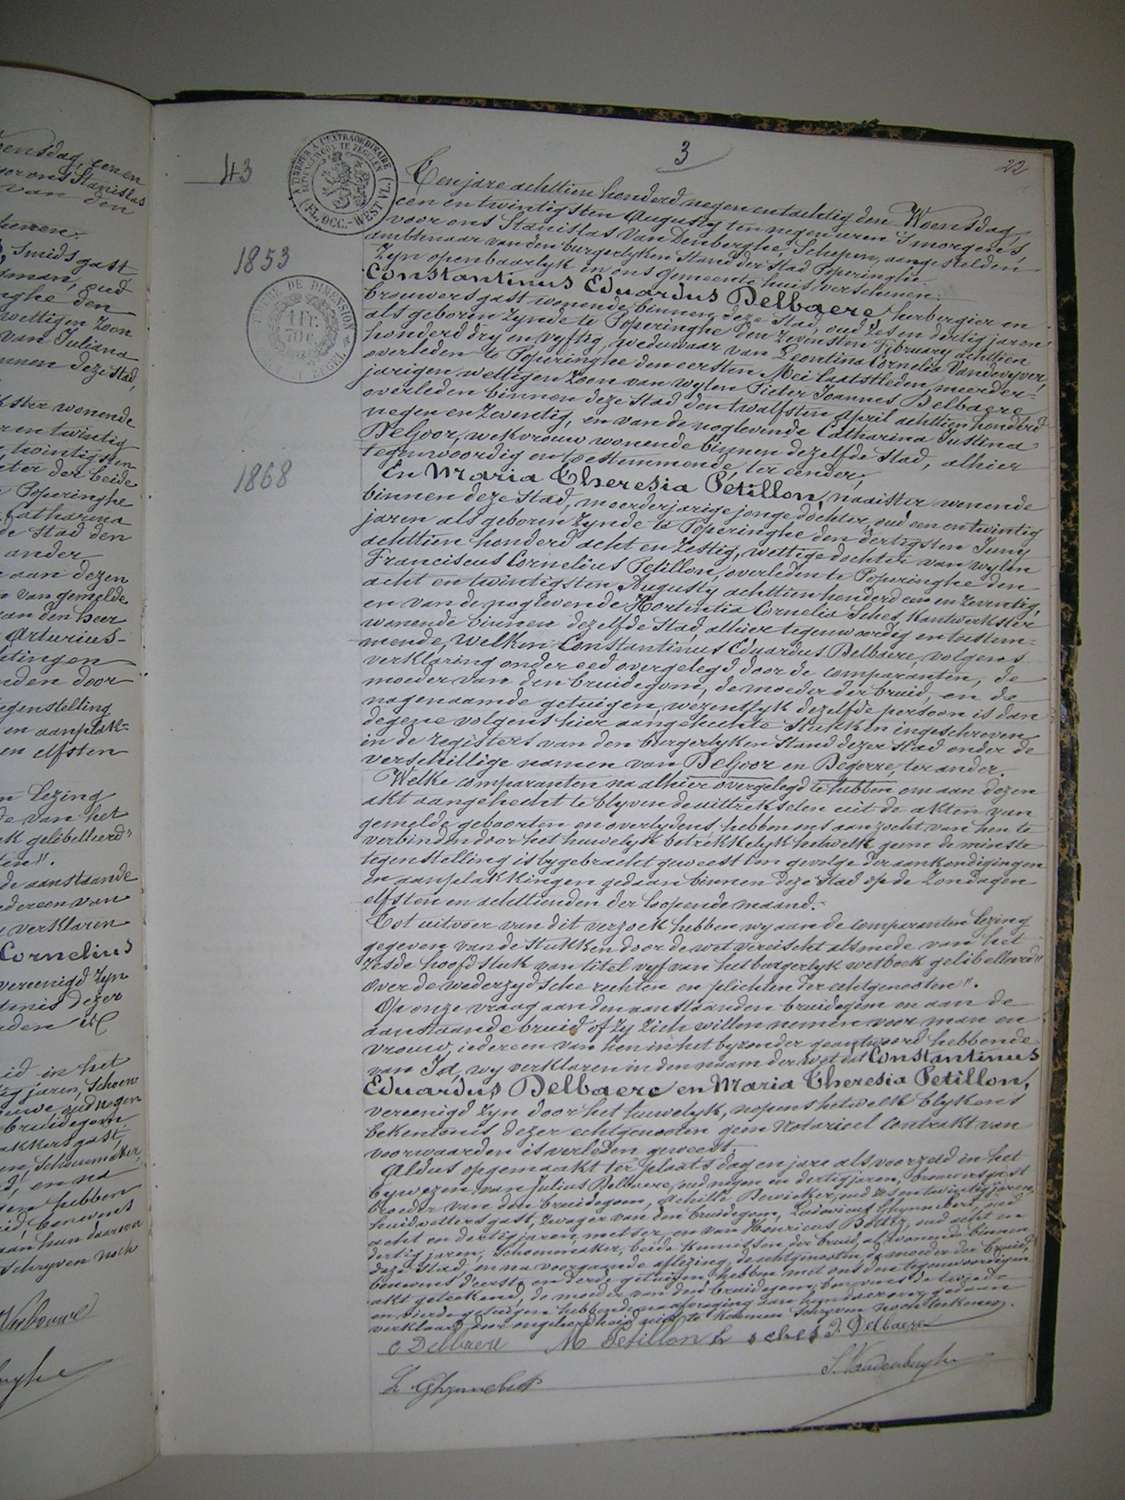 3
22
43
Ten jare achttien honderd negen entachtig den Woensdag,
een en twintigsten Augusty ten negen uren 's morgens,
voor ons Stanislas Vandenberghe, Schepen, aangestelden
ambtenaar van den burgerlyken Stand der Stad Poperinghe
Zyn openbaarlyk in ons gemeente huis verschenen:
1853
Constantinus Eduardus Delbaere, herbergier en
brouwersgast wonende binnen deze Stad, oud zes en dertig jaren
als geboren Zynde te Poperinghe den zevensten February achttien
honderd dry en vyftig, weduwaar van Leontina Cornelia Vandewyver,
overleden te Poperinghe den eersten Mei laatstleden, meerder-
jarigen wettigen Zoon van wylen Pieter Joannes Delbaere
overleden binnen deze Stad den twalfsten april achttien honderd
negen en Zeventig, en van de noglevende Catharina Justina
DeGoor, werkvrouw wonende binnen dezelfde Stad, alhier
tegenwoordig en toestemmende, ter eender,
1868
En Maria Theresia Petillon, naaister wonende
binnen deze Stad, meerderjarige jonge dochter, oud een en twintig
jaren als geboren Zynde te Poperinghe den dertigsten Juny
achttien honderd acht en Zestig, wettige dochter van wylen
Franciscus Cornelius Petillon, overleden te Poperinghe den
acht en twintigsten Augusty achttien honderd een en Zeventig,
en van de noglevende Hortentia Cornelia Sches, Kantwerkster
wonende binnen dezelfde Stad, alhier tegenwoordig en toestem-
mende, Welken Constantinus Eduardus Delbaere, volgens
verklaring onder eed overgelegd door de comparanten, de
moeder van den bruidegom, de moeder der bruid, en de
nagenaamde getuigen, wezentlyk dezelfde persoon is dan
degene volgens hier aangehechte Stukken ingeschreven
in de registers van den burgerlyken Stand dezer Stad onder de
verschillige namen van DeGoor en Degorre, ter ander.
Welke comparanten na alhier overgelegd te hebben om aan dezen
akt aangehecht te blyven de uittrekselen uit de akten van
gemelde geboorten en overlydens, hebben ons aanzocht van hen te
verbinden door het huwelyk betrekkelyk hetwelk geene de minste
tegenstelling is bygebracht geweest ten gevolge der aankondigingen
en aanplakkingen gedaan binnen deze Stad op de Zondagen
elfsten en achttienden der loopende maand.
Tot uitvoer van dit verzoek hebben wy aan de comparanten lezing
gegeven van de Stukken door de wet vereischt alsmede van het
Zesde hoofdstuk van titel vyf van het burgerlyk wetboek gelibelleerd "
Over de wederzydsche rechten en plichten der echtgenooten".
Op onze vraag aan den aanstaanden bruidegom en aan de
aanstaande bruid of Zy Zich willen nemen voor man en
vrouw, iedereen van hen in het byzonder geantwoord hebbende
van Ja, wy verklaren in den naam der wet dat Constantinus
Eduardus Delbaere en Maria Theresia Petillon,
vereenigd Zyn door het huwelyk, nopens hetwelk blykens
bekentenis dezer echtgenooten geen Notarieel contrakt van
voorwaarden is verleden geweest.
Aldus opgemaakt ter plaats dag en jare als voorzeid in het
bywezen van Julius Delbaere, oud negen en dertig jaren, brouwersgast
broeder van den bruidegom, Achille Dewicker, oud zes en twintig jaren
huidevettersgast, Zwager van den bruidegom, Ludovicus Ghynnebert, oud
acht en dertig jaren, metser, en van Henricus Bottz, oud acht en
dertig jaren, Schoenmaker, beide Kennissen der bruid, al wonende binnen
deze Stad, en na voorgaande aflezing, de echtgenooten, de moeder der bruid,
benevens d'eerste en derde getuigen hebben met ons den tegenwoordigen
akt geteekend, de moeder van den bruidegom, benevens de tweede
en vierde getuigen hebbende na afvraging aan hun daarover gedaan
verklaard door ongeleerdheid niet te Konnen Schryven noch teekenen.
C Delbaere M Petillon h sches J. Delbaere
L. Ghynnebert S. Vandenberghe